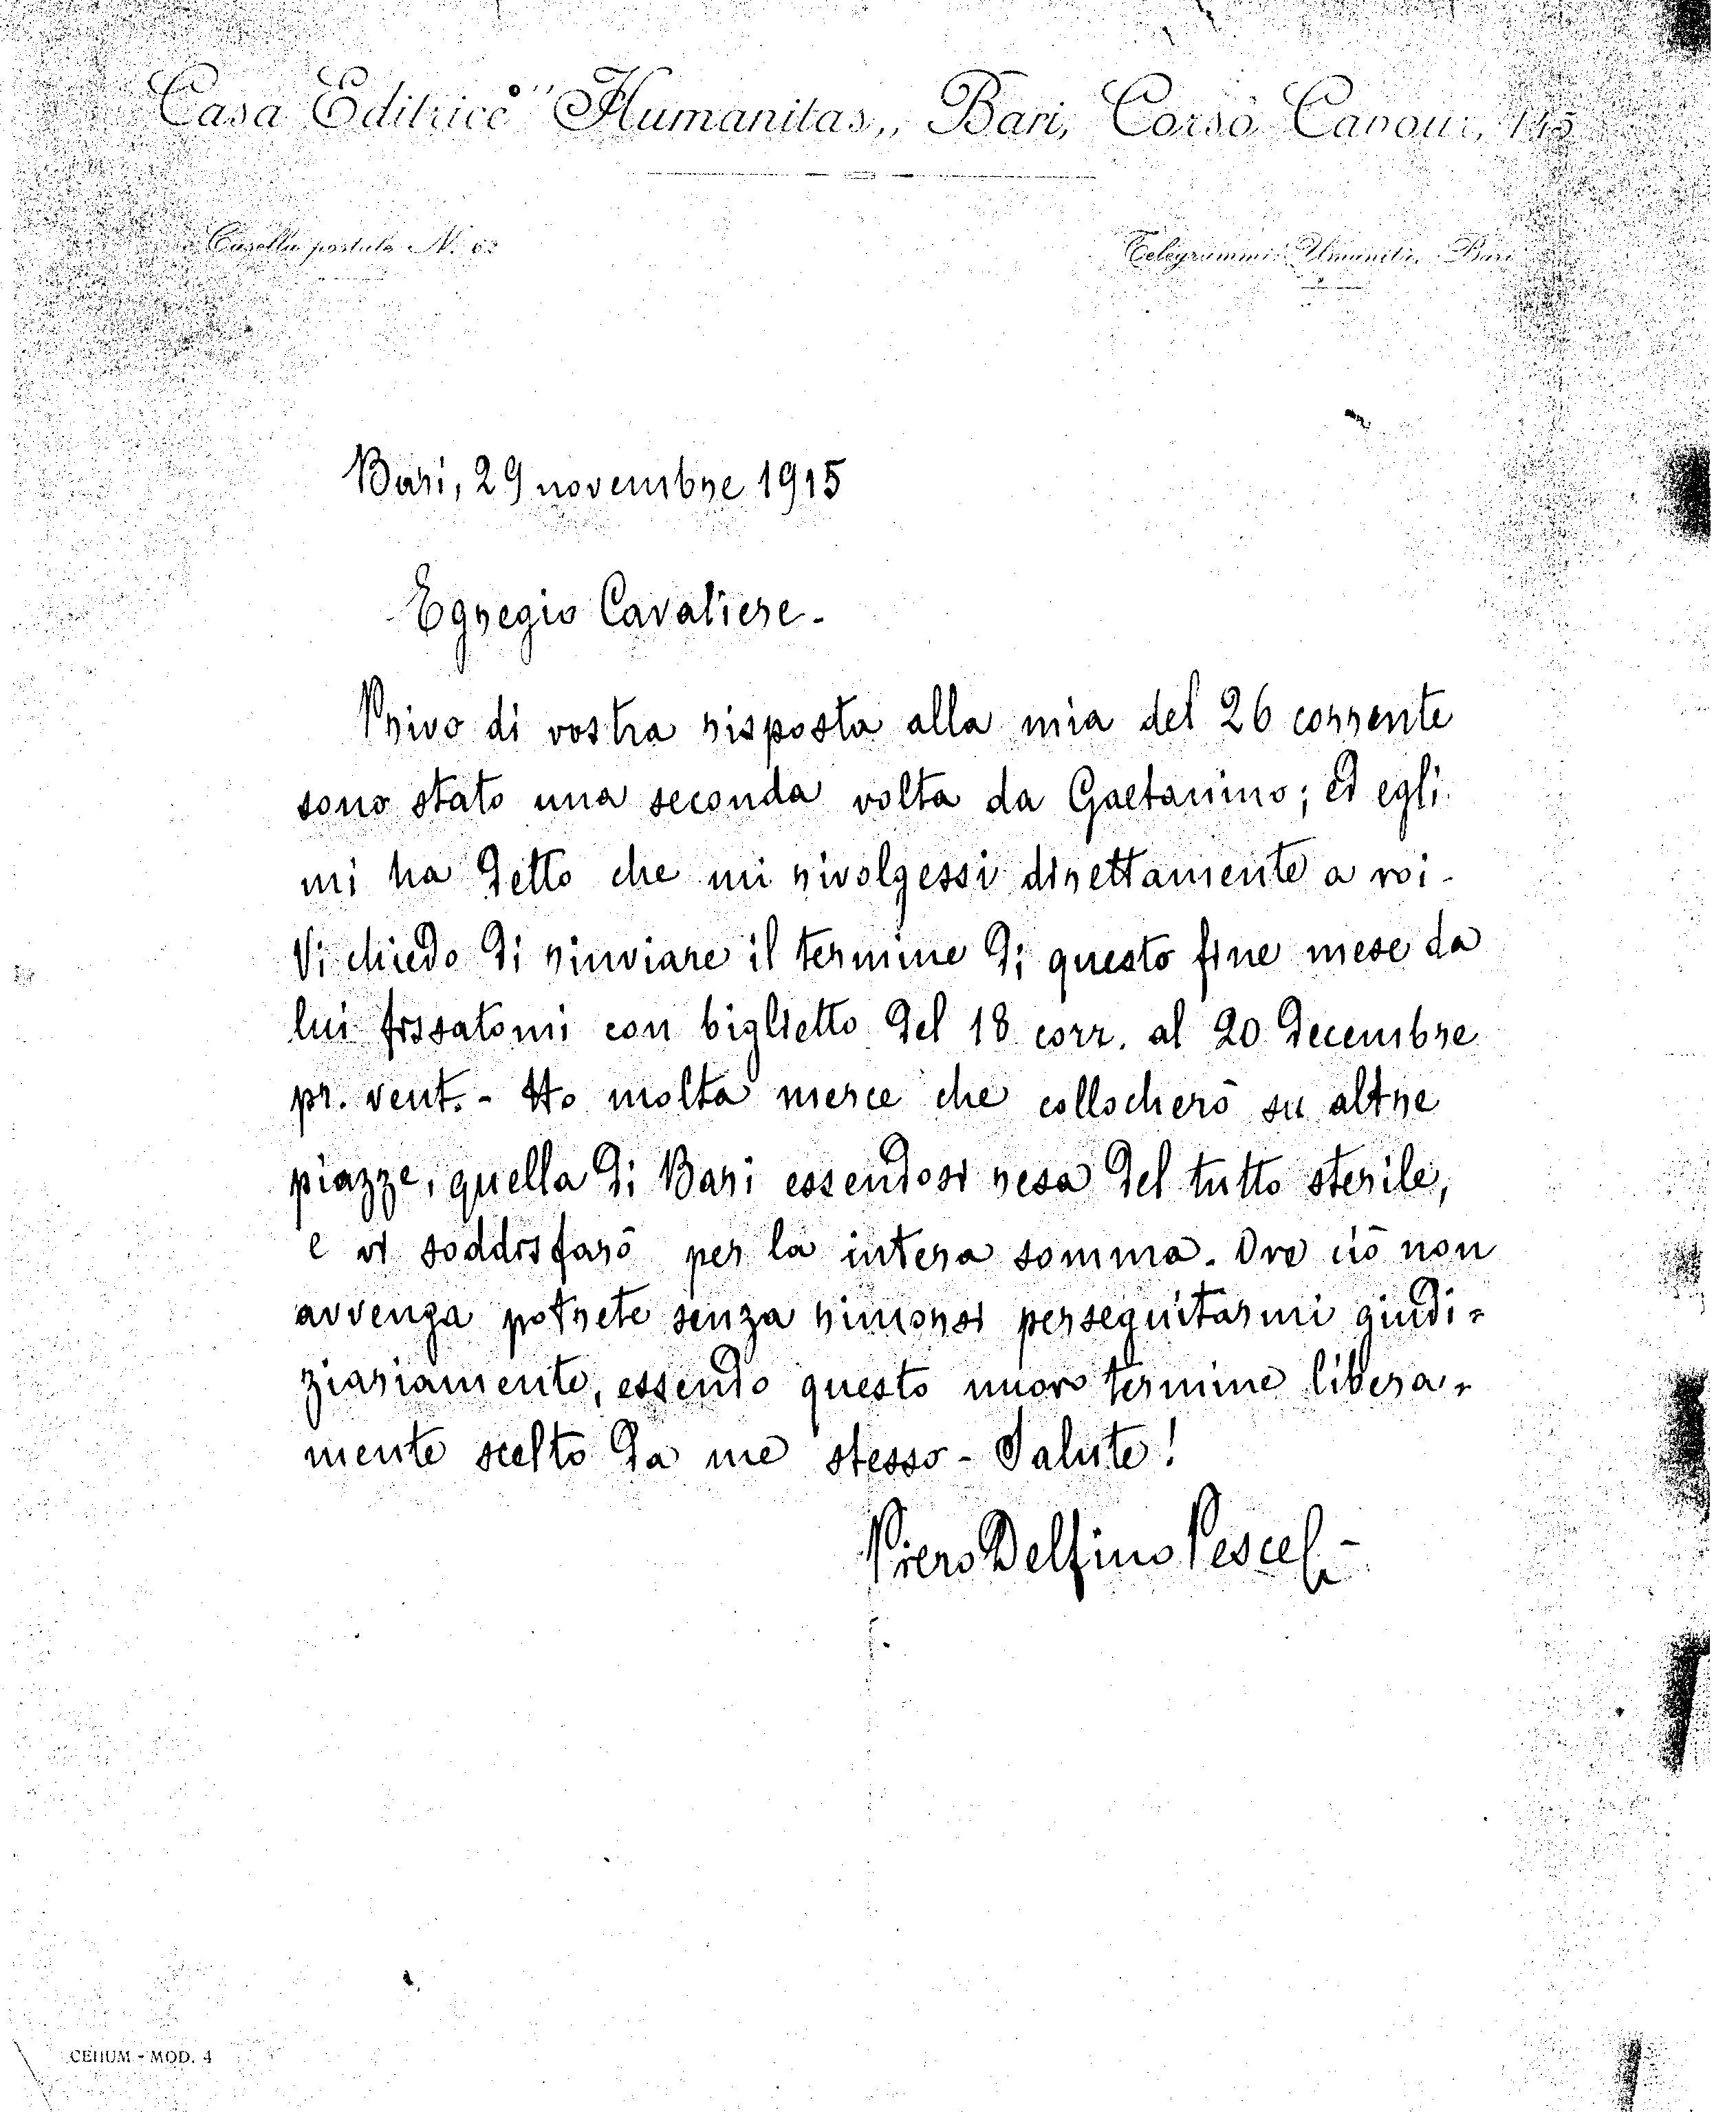 Casa Editrice "Humanitas„ Bari, Corso Cavour, 145
Casella postale N. 63
Telegrammi: Umanità, Bari
Bari, 29 novembre 1915
Egregio Cavaliere.
Privo di vostra risposta alla mia del 26 corrente
sono stato una seconda volta da Gaetanino; ed egli
mi ha detto che mi rivolgessi direttamente a voi.
Vi chiedo di rinviare il termine di questo fine mese da
lui fissatomi con biglietto del 18 corr. al 20 decembre
pr. vent. - Ho molta merce che collocherò su altre
piazze, quella di Bari essendosi resa del tutto sterile,
e vi soddisfarò per la intera somma. Ove ciò non
avvenga potrete senza rimorsi perseguitarmi giudi=
ziariamente, essendo questo nuovo termine libera=
mente scelto da me stesso - Salute!
Piero Delfino Pesce
CEHUM - MOD. 4